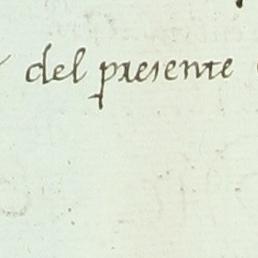 del presente